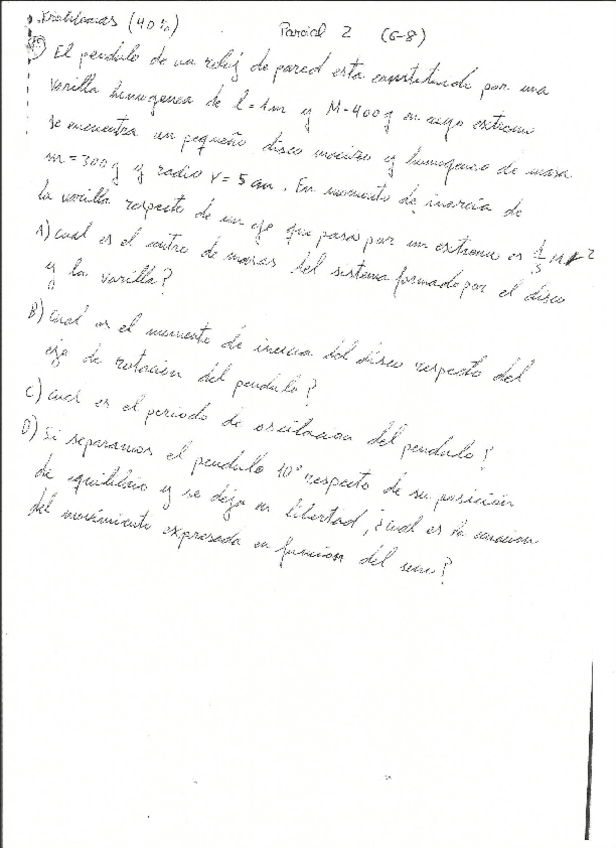 Problemas (40%)
Parcial 2 (6-8)
El pendulo de un reloj de pared esta constituido por una
varilla homogenea de l=1m y M=400g en cuyo extremo
se encuentra un pequeño disco macizo y homogeneo de masa
m=300g y radio r=5cm. En momento de inercia de
la varilla respecto de un eje que pasa por un extremo es 1/3 Ml²
A) cual es el centro de masas del sistema formado por el disco
y la varilla?
B) Cual es el momento de inercia del disco respecto del
eje de rotacion del pendulo?
C) Cual es el periodo de oscilacion del pendulo?
D) Si separamos el pendulo 10° respecto de su posición
de equilibrio y se deja en libertad, ¿Cual es la ecuacion
del movimiento expresada en funcion del seno?